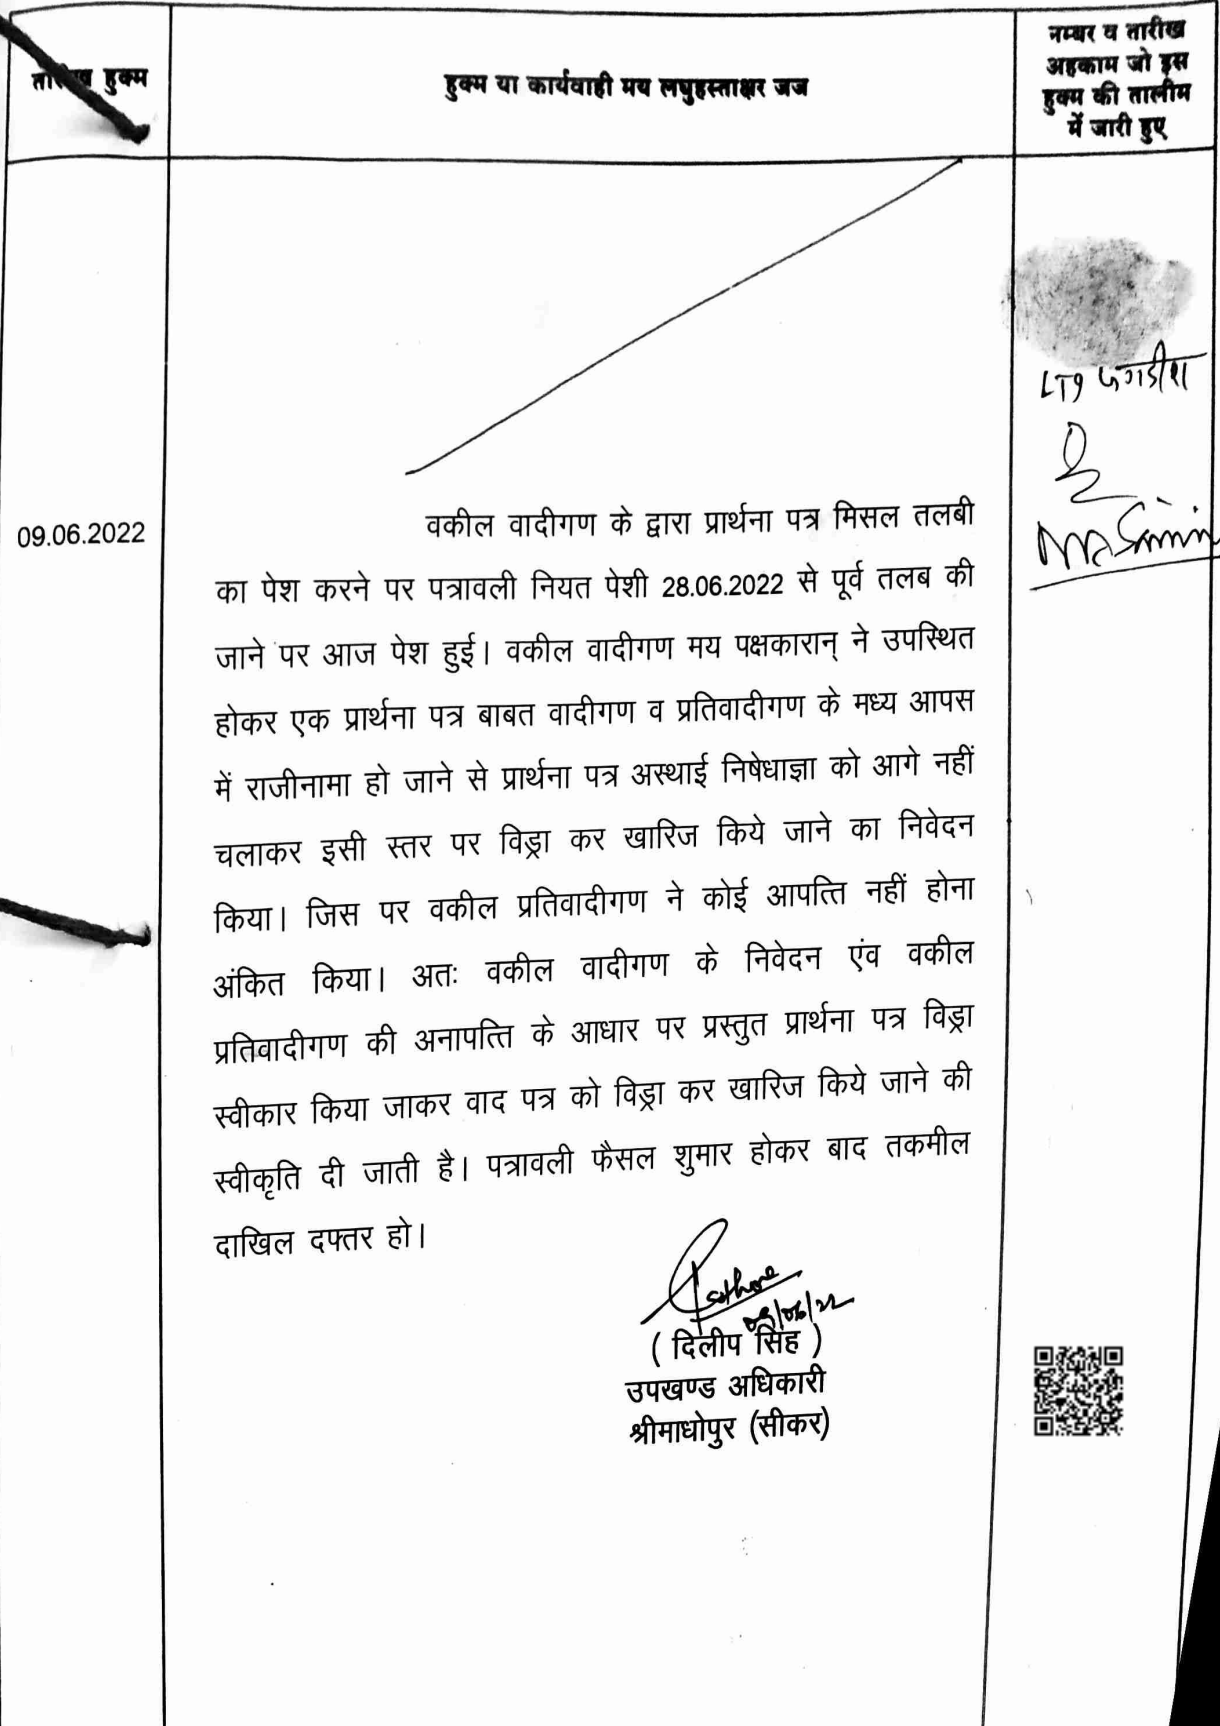 तारीख हुक्म
हुक्म या कार्यवाही मय लघुहस्ताक्षर जज
नम्बर व तारीख
अहकाम जो इस
हुक्म की तालीम
में जारी हुए
LTI जगदीश
09.06.2022
वकील वादीगण के द्वारा प्रार्थना पत्र मिसल तलबी
का पेश करने पर पत्रावली नियत पेशी 28.06.2022 से पूर्व तलब की
जाने पर आज पेश हुई। वकील वादीगण मय पक्षकारान् ने उपस्थित
होकर एक प्रार्थना पत्र बाबत वादीगण व प्रतिवादीगण के मध्य आपस
में राजीनामा हो जाने से प्रार्थना पत्र अस्थाई निषेधाज्ञा को आगे नहीं
चलाकर इसी स्तर पर विड्रा कर खारिज किये जाने का निवेदन
किया। जिस पर वकील प्रतिवादीगण ने कोई आपत्ति नहीं होना
अंकित किया। अतः वकील वादीगण के निवेदन एंव वकील
प्रतिवादीगण की अनापत्ति के आधार पर प्रस्तुत प्रार्थना पत्र विड्रा
स्वीकार किया जाकर वाद पत्र को विड्रा कर खारिज किये जाने की
स्वीकृति दी जाती है। पत्रावली फैसल शुमार होकर बाद तकमील
दाखिल दफ्तर हो।
09/06/22
( दिलीप सिंह )
उपखण्ड अधिकारी
श्रीमाधोपुर (सीकर)